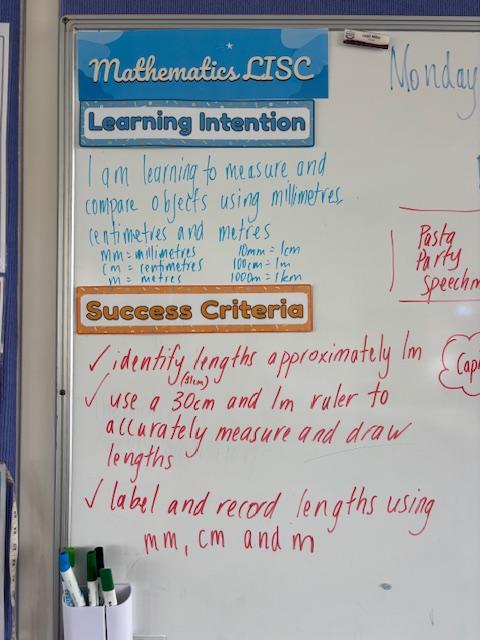 Mathematics LISC
Monday
Learning Intention
I am learning to measure and
compare objects using millimetres,
centimetres and metres
mm = millimetres 10mm = 1cm
cm = centimetres 100cm = 1m
m = metres 1000m = 1km
Pasta
Party
Speechm
Success Criteria
✓ identify lengths approximately 1m
(31cm)
✓ use a 30cm and 1m ruler to
accurately measure and draw
lengths
✓ label and record lengths using
mm, cm and m
Capi